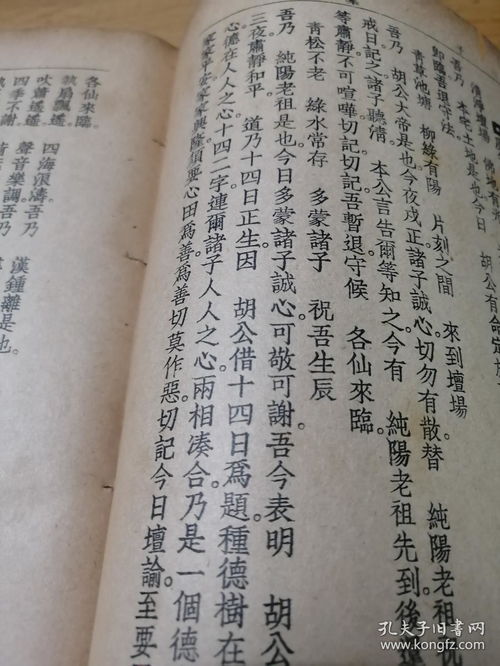 清淨壇場
吾乃 本宅土地是也
即臨吾退守法
青草池塘 柳綠有陽 片刻之間 來到壇場
吾乃 胡公大帝是也今夜戌正諸子誠心。切勿有散替 純陽老祖
戒日記之。諸子聽清。 本公言告爾等知之今有 純陽老祖先到後
等肅靜。不可喧嘩。切記切記。吾暫退守候 各仙來臨。
青松不老 綠水常存 多蒙諸子 祝吾生辰
吾乃 純陽老祖是也今日多蒙諸子誠心。可敬可謝。吾今表明 胡公
三夜肅靜和平。 道乃十四日正生因 胡公借十四日爲題。種德樹在
心。德在人人之心。十四二字。連爾諸子人人之心。兩相凑合。乃是一個德
家家興隆。須要心田爲善。爲善切莫作惡。切記今日壇諭。至要
各仙來臨。
執扇飄遙。
吹簫遙遙
四季不謝
四海浪濤。吾乃
聲音樂調。吾乃
漢鍾離是也。
孔夫子旧書网
www.kongfz.com